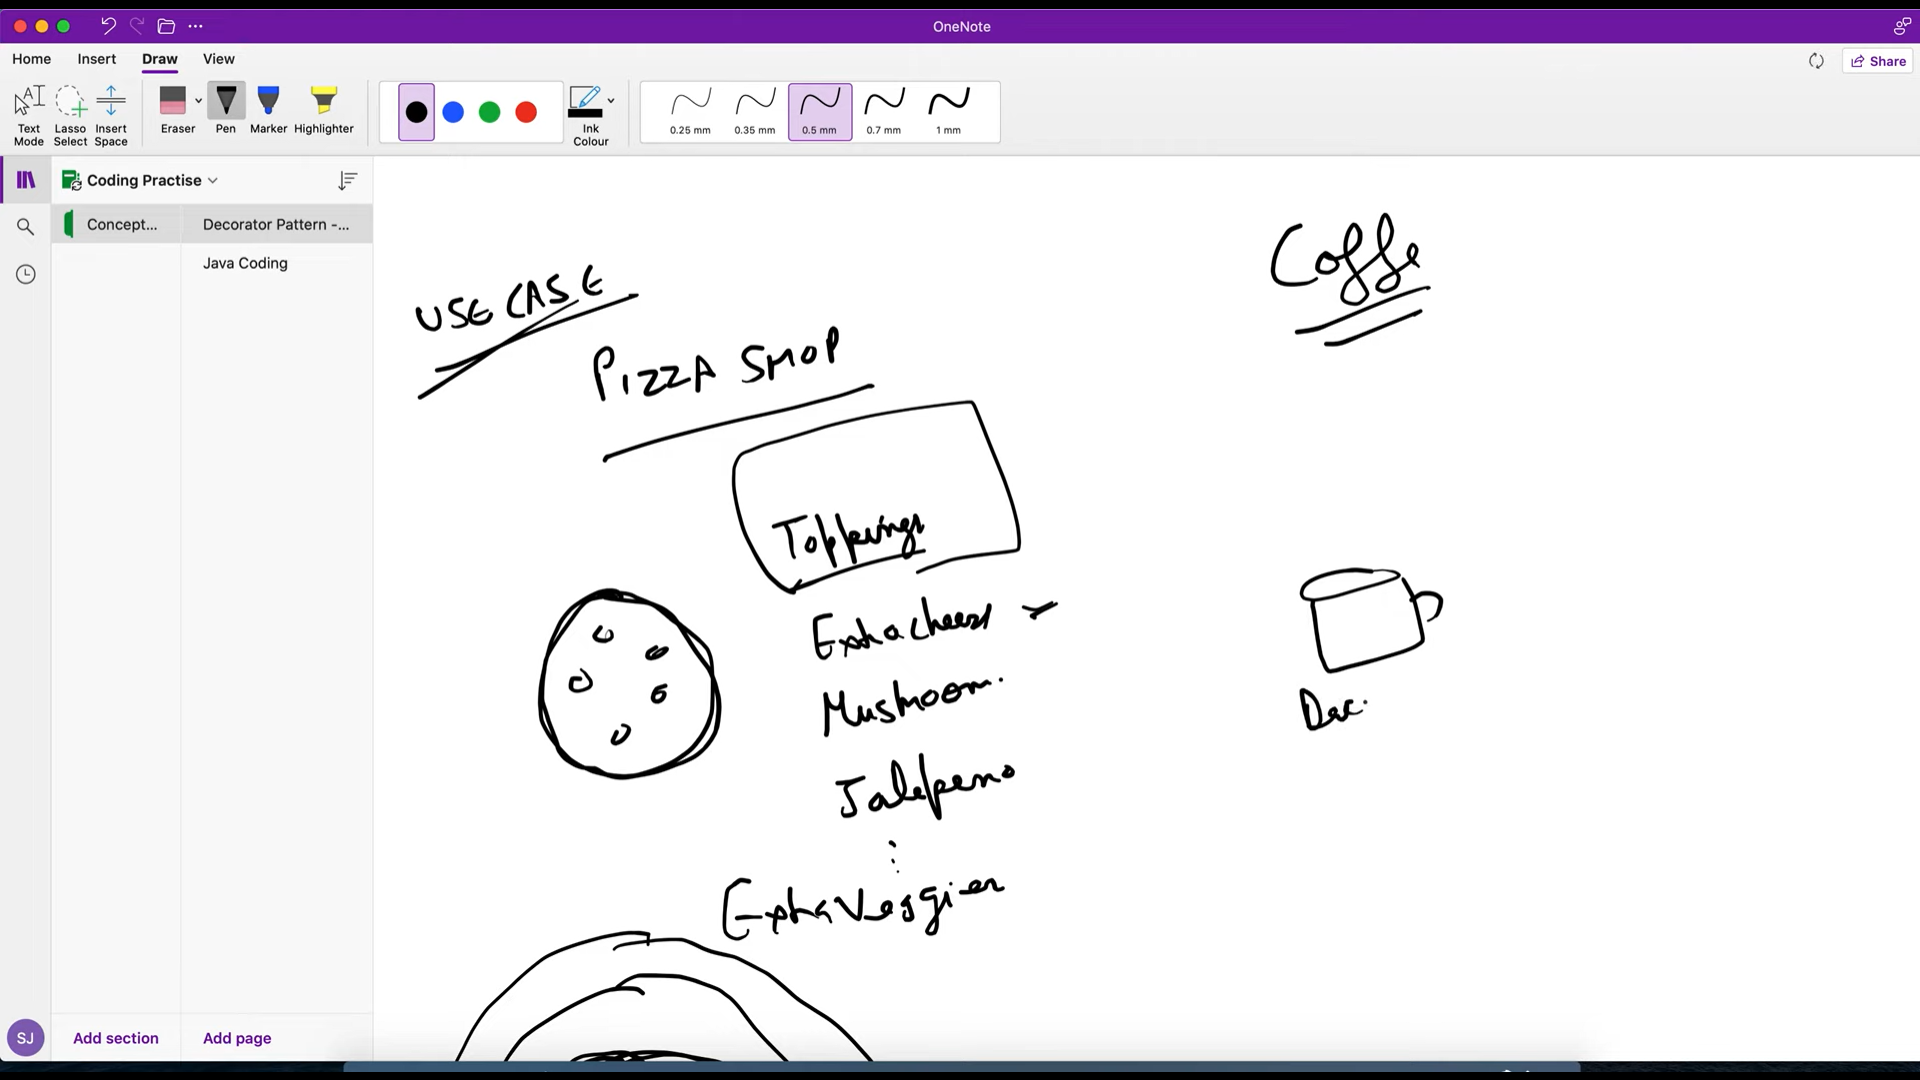 OneNote
Home Insert Draw View
Share
Text Mode
Lasso Select
Insert Space
Eraser
Pen
Marker
Highlighter
Ink Colour
0.25 mm
0.35 mm
0.5 mm
0.7 mm
1 mm
Coding Practise
Concept... Decorator Pattern -...
Java Coding
Coffe
USE CASE
PIZZA SHOP
Toppings
Extra cheese
Mushroom.
Jalepeno
Extra Veggies
SJ
Add section
Add page